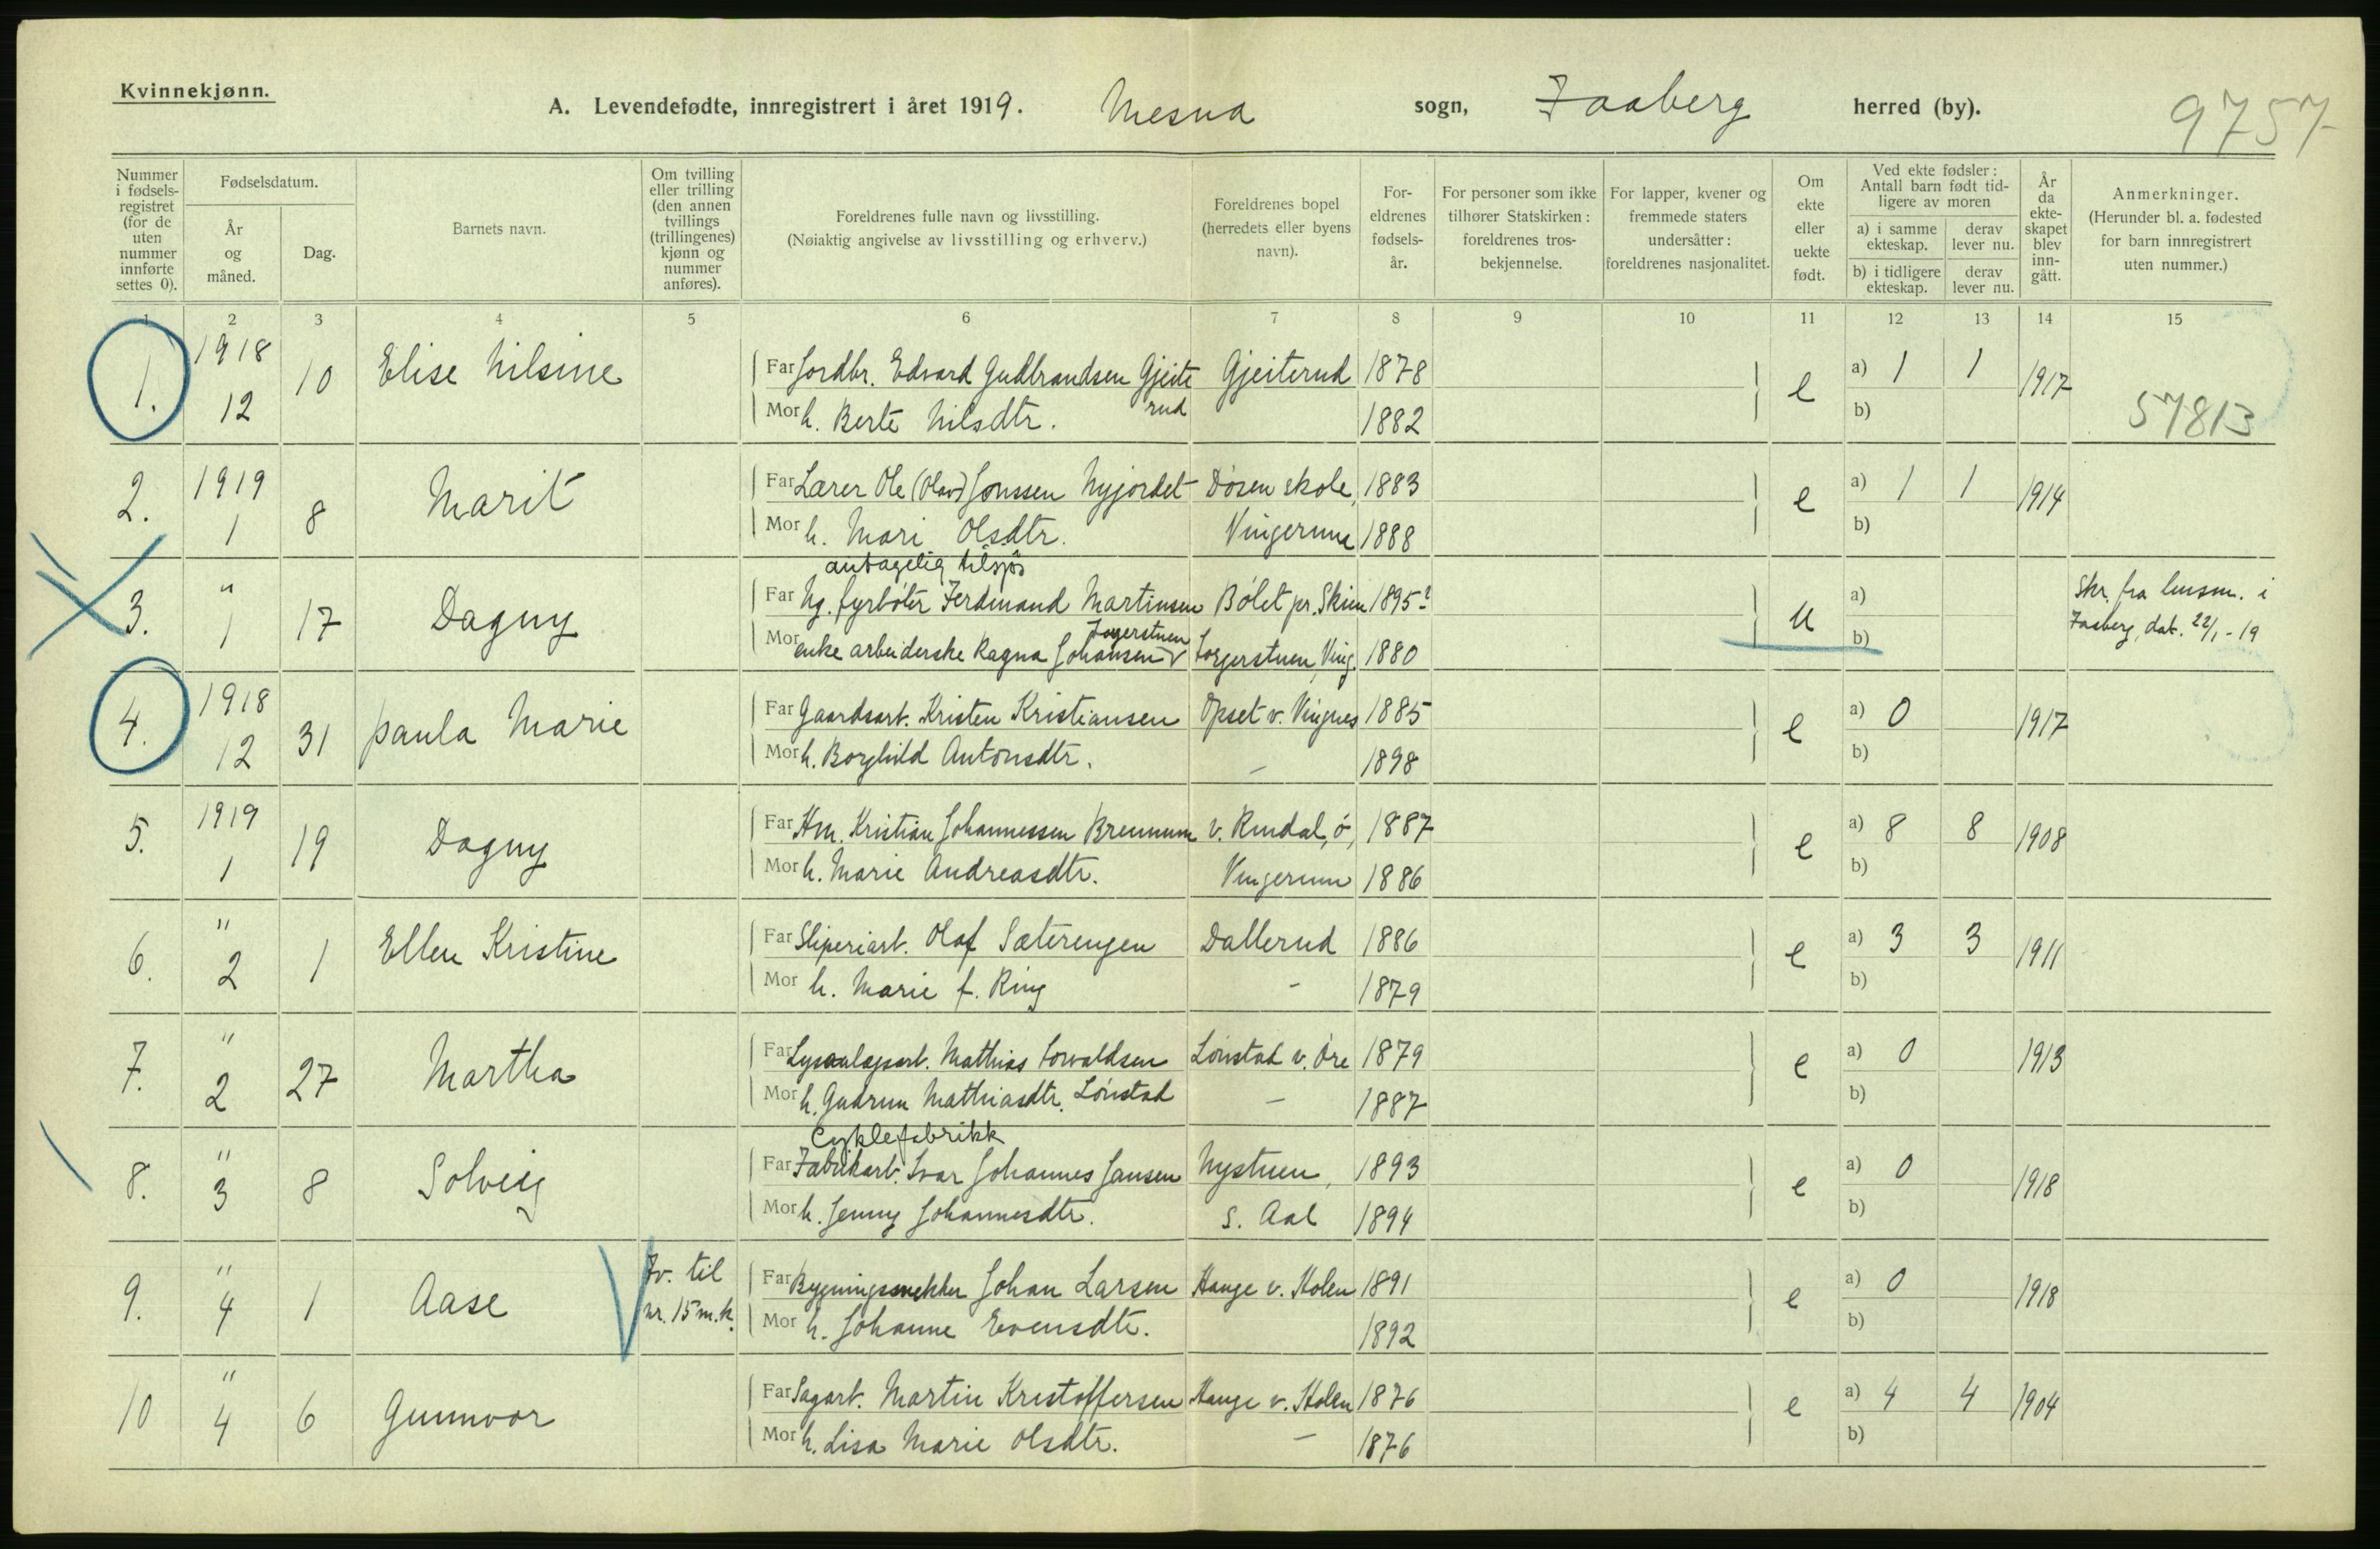 Kvinnekjønn.
A. Levendefødte, innregistrert i året 1919. Mesna sogn, Faaberg herred (by).
9757
Nummer i fødselsregistret (for de uten nummer innførte settes 0).
Fødselsdatum.
År og måned.
Dag.
Barnets navn.
Om tvilling eller trilling (den annen tvillings (trillingenes) kjønn og nummer anføres).
Foreldrenes fulle navn og livsstilling.
(Nøiaktig angivelse av livsstilling og erhverv.)
Foreldrenes bopel (herredets eller byens navn).
For-eldrenes fødsels-år.
For personer som ikke tilhører Statskirken: foreldrenes tros-bekjennelse.
For lapper, kvener og fremmede staters undersåtter: foreldrenes nasjonalitet.
Om ekte eller uekte født.
Ved ekte fødsler: Antall barn født tid-ligere av moren
a) i samme ekteskap.
derav lever nu.
b) i tidligere ekteskap.
derav lever nu.
År da ekte-skapet blev inn-gått.
Anmerkninger.
(Herunder bl. a. fødested for barn innregistrert uten nummer.)
1 2 3 4 5 6 7 8 9 10 11 12 13 14 15
1. 1918 12 10 Elise Nilsine
Far Jordbr. Edvard Gudbrandsen Gjeiterud Gjeiterud 1878 e a) 1 1 1917
Mor h. Berte Nilsdtr. 1882 b) 57813
2. 1919 1 8 Marit
Far Lærer Ole (Olav) Jonssen Nyjordet Døsen skole, 1883 e a) 1 1 1914
Mor h. Mari Olsdtr. Vingerum 1888 b)
antagelig tilsjøs
3. " 1 17 Dagny
Far Ug. fyrbøter Ferdinand Martinsen Bølet pr. Skien 1895? u a) Skr. fra lensm. i
Mor enke arbeiderske Ragna Johansen 1880 b) Faaberg, dat. 22/1-19
4. 1918 12 31 Paula Marie
Far Gaardsarb. Kristen Kristiansen Opset v. Vingnes 1885 e a) 0 1917
Mor h. Borghild Antonsdtr. — 1898 b)
5. 1919 1 19 Dagny
Far Hm. Kristian Johannessen Brennum v. Rindal, ø, 1887 e a) 8 8 1908
Mor h. Marie Andreasdtr. Vingerum 1886 b)
6. " 2 1 Ellen Kristine
Far Sliperiarb. Olaf Sæterengen Dallerud 1886 e a) 3 3 1911
Mor h. Marie f. Ring - 1879 b)
7. " 2 27 Martha
Far Lysanlægsarb. Mathias Torvaldsen Lønstad v. Øre 1879 e a) 0 1913
Mor h. Gudrun Mathiasdtr. Lønstad — 1887 b)
Cyklefabrikk
8. " 3 8 Solveig
Far Fabrikarb. Ivar Johannes Jansen Nystuen, 1893 e a) 0 1918
Mor h. Jenny Johannesdtr. S. Aal 1894 b)
9. " 4 1 Aase Tv. til nr. 15 m.k.
Far Bygningssnekker Johan Larsen Hauge v. Holen 1891 e a) 0 1918
Mor h. Johanne Evensdtr. 1892 b)
10 " 4 6 Gunnvor
Far Sagarb. Martin Kristoffersen Hauge v. Holen 1876 e a) 4 4 1904
Mor h. Lisa Marie Olsdtr. — 1876 b)